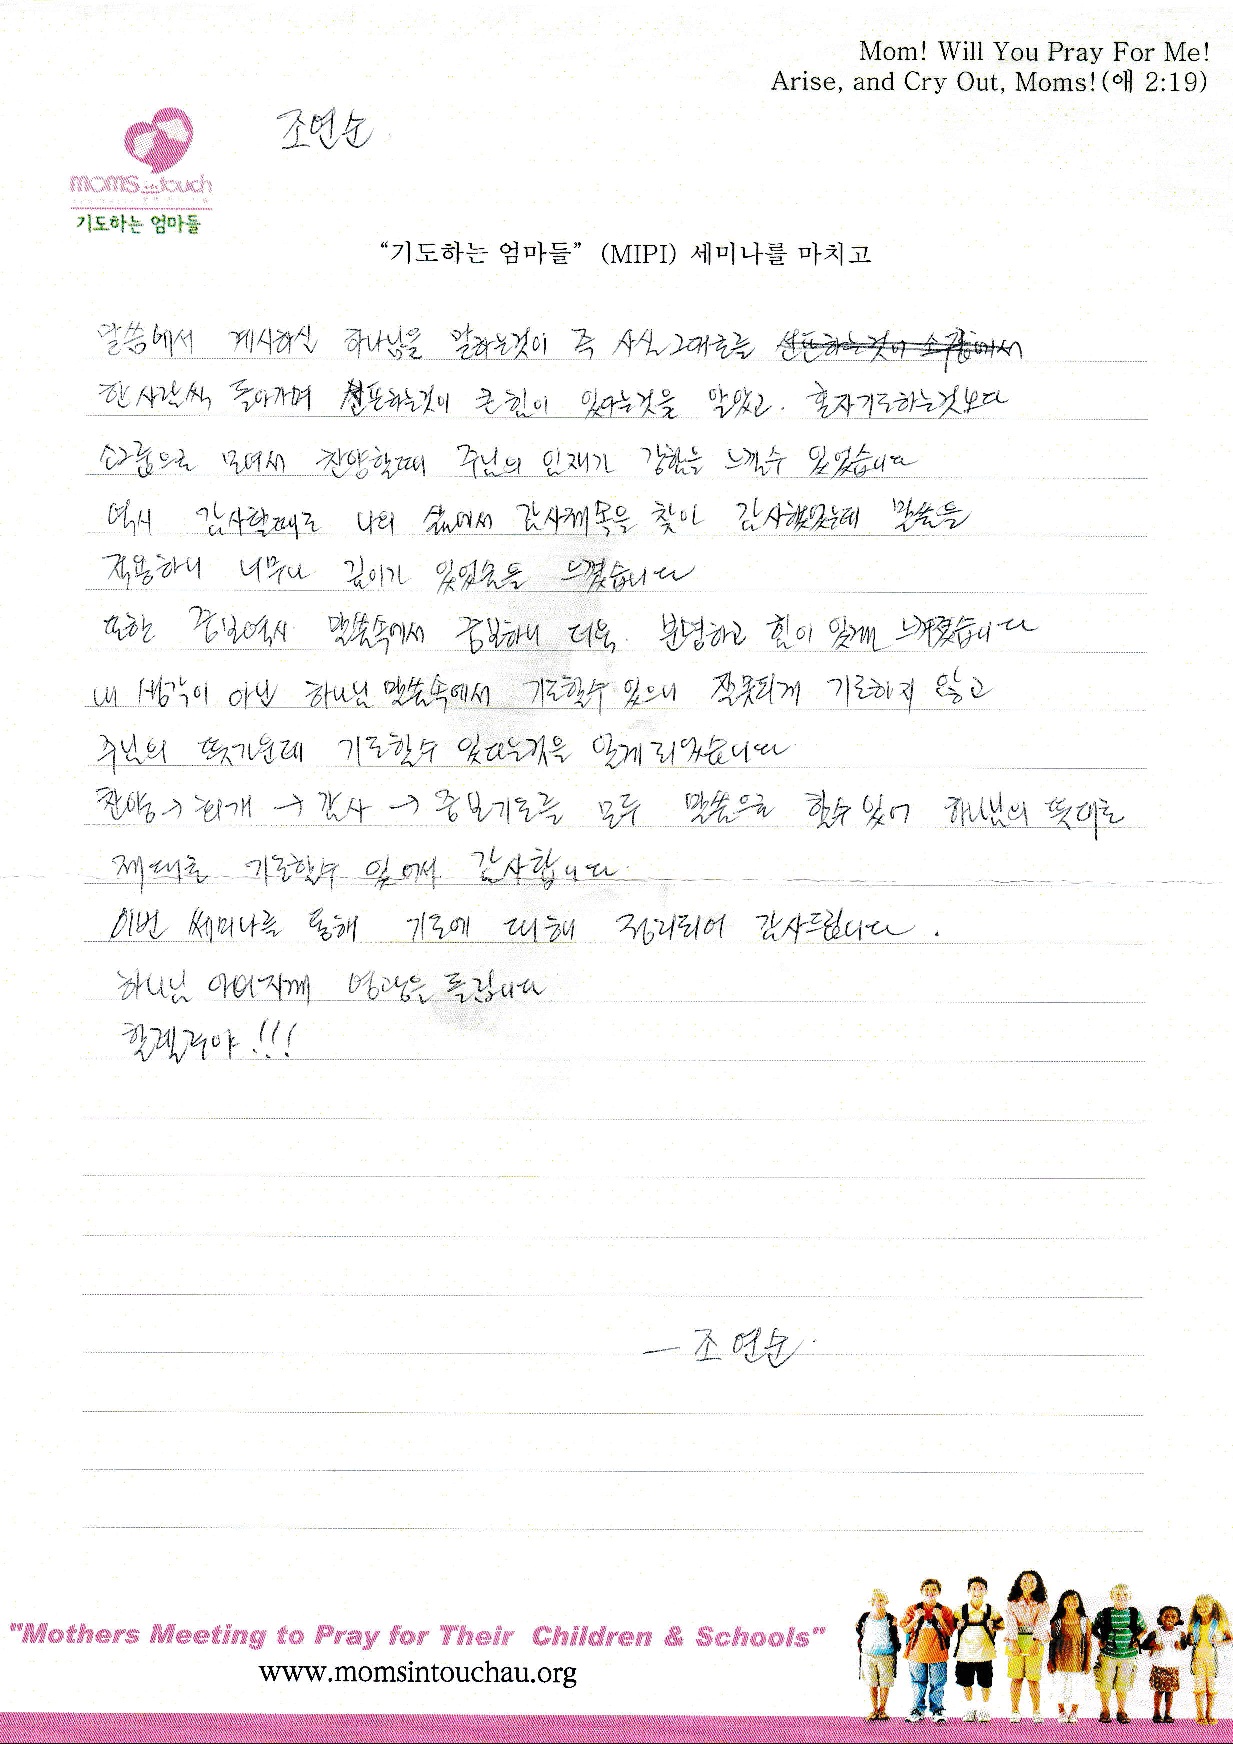 Mom! Will You Pray For Me!
Arise, and Cry Out, Moms!(애 2:19)
조연순
moms in touch
기도하는 엄마들
“기도하는 엄마들” (MIPI) 세미나를 마치고
말씀에서 계시하신 하나님을 말하는것이 즉 사실 그대로를 선포하는것이 소그룹에서
한 사람씩 돌아가며 선포하는것이 큰 힘이 있다는것을 알았고. 혼자기도하는것보다
소그룹으로 모여서 찬양할때 주님의 임재가 강함을 느낄수 있었습니다
역시 감사할때도 나의 삶에서 감사제목을 찾아 감사했었는데 말씀을
적용하니 너무나 깊이가 있었음을 느꼈습니다
또한 중보역시 말씀속에서 중보하니 더욱 분명하고 힘이 있게 느껴졌습니다
내 생각이 아닌 하나님 말씀속에서 기도할수 있으니 잘못되게 기도하지 않고
주님의 뜻가운데 기도할수 있다는것을 알게 되었습니다
찬양→ 회개 → 감사 → 중보기도를 모두 말씀으로 할수 있어 하나님의 뜻대로
제대로 기도할수 있어서 감사합니다
이번 쎄미나를 통해 기도에 대해 정리되어 감사드립니다.
하나님 아버지께 영광을 돌립니다
할렐루야!!!
— 조연순.
"Mothers Meeting to Pray for Their Children & Schools"
www.momsintouchau.org